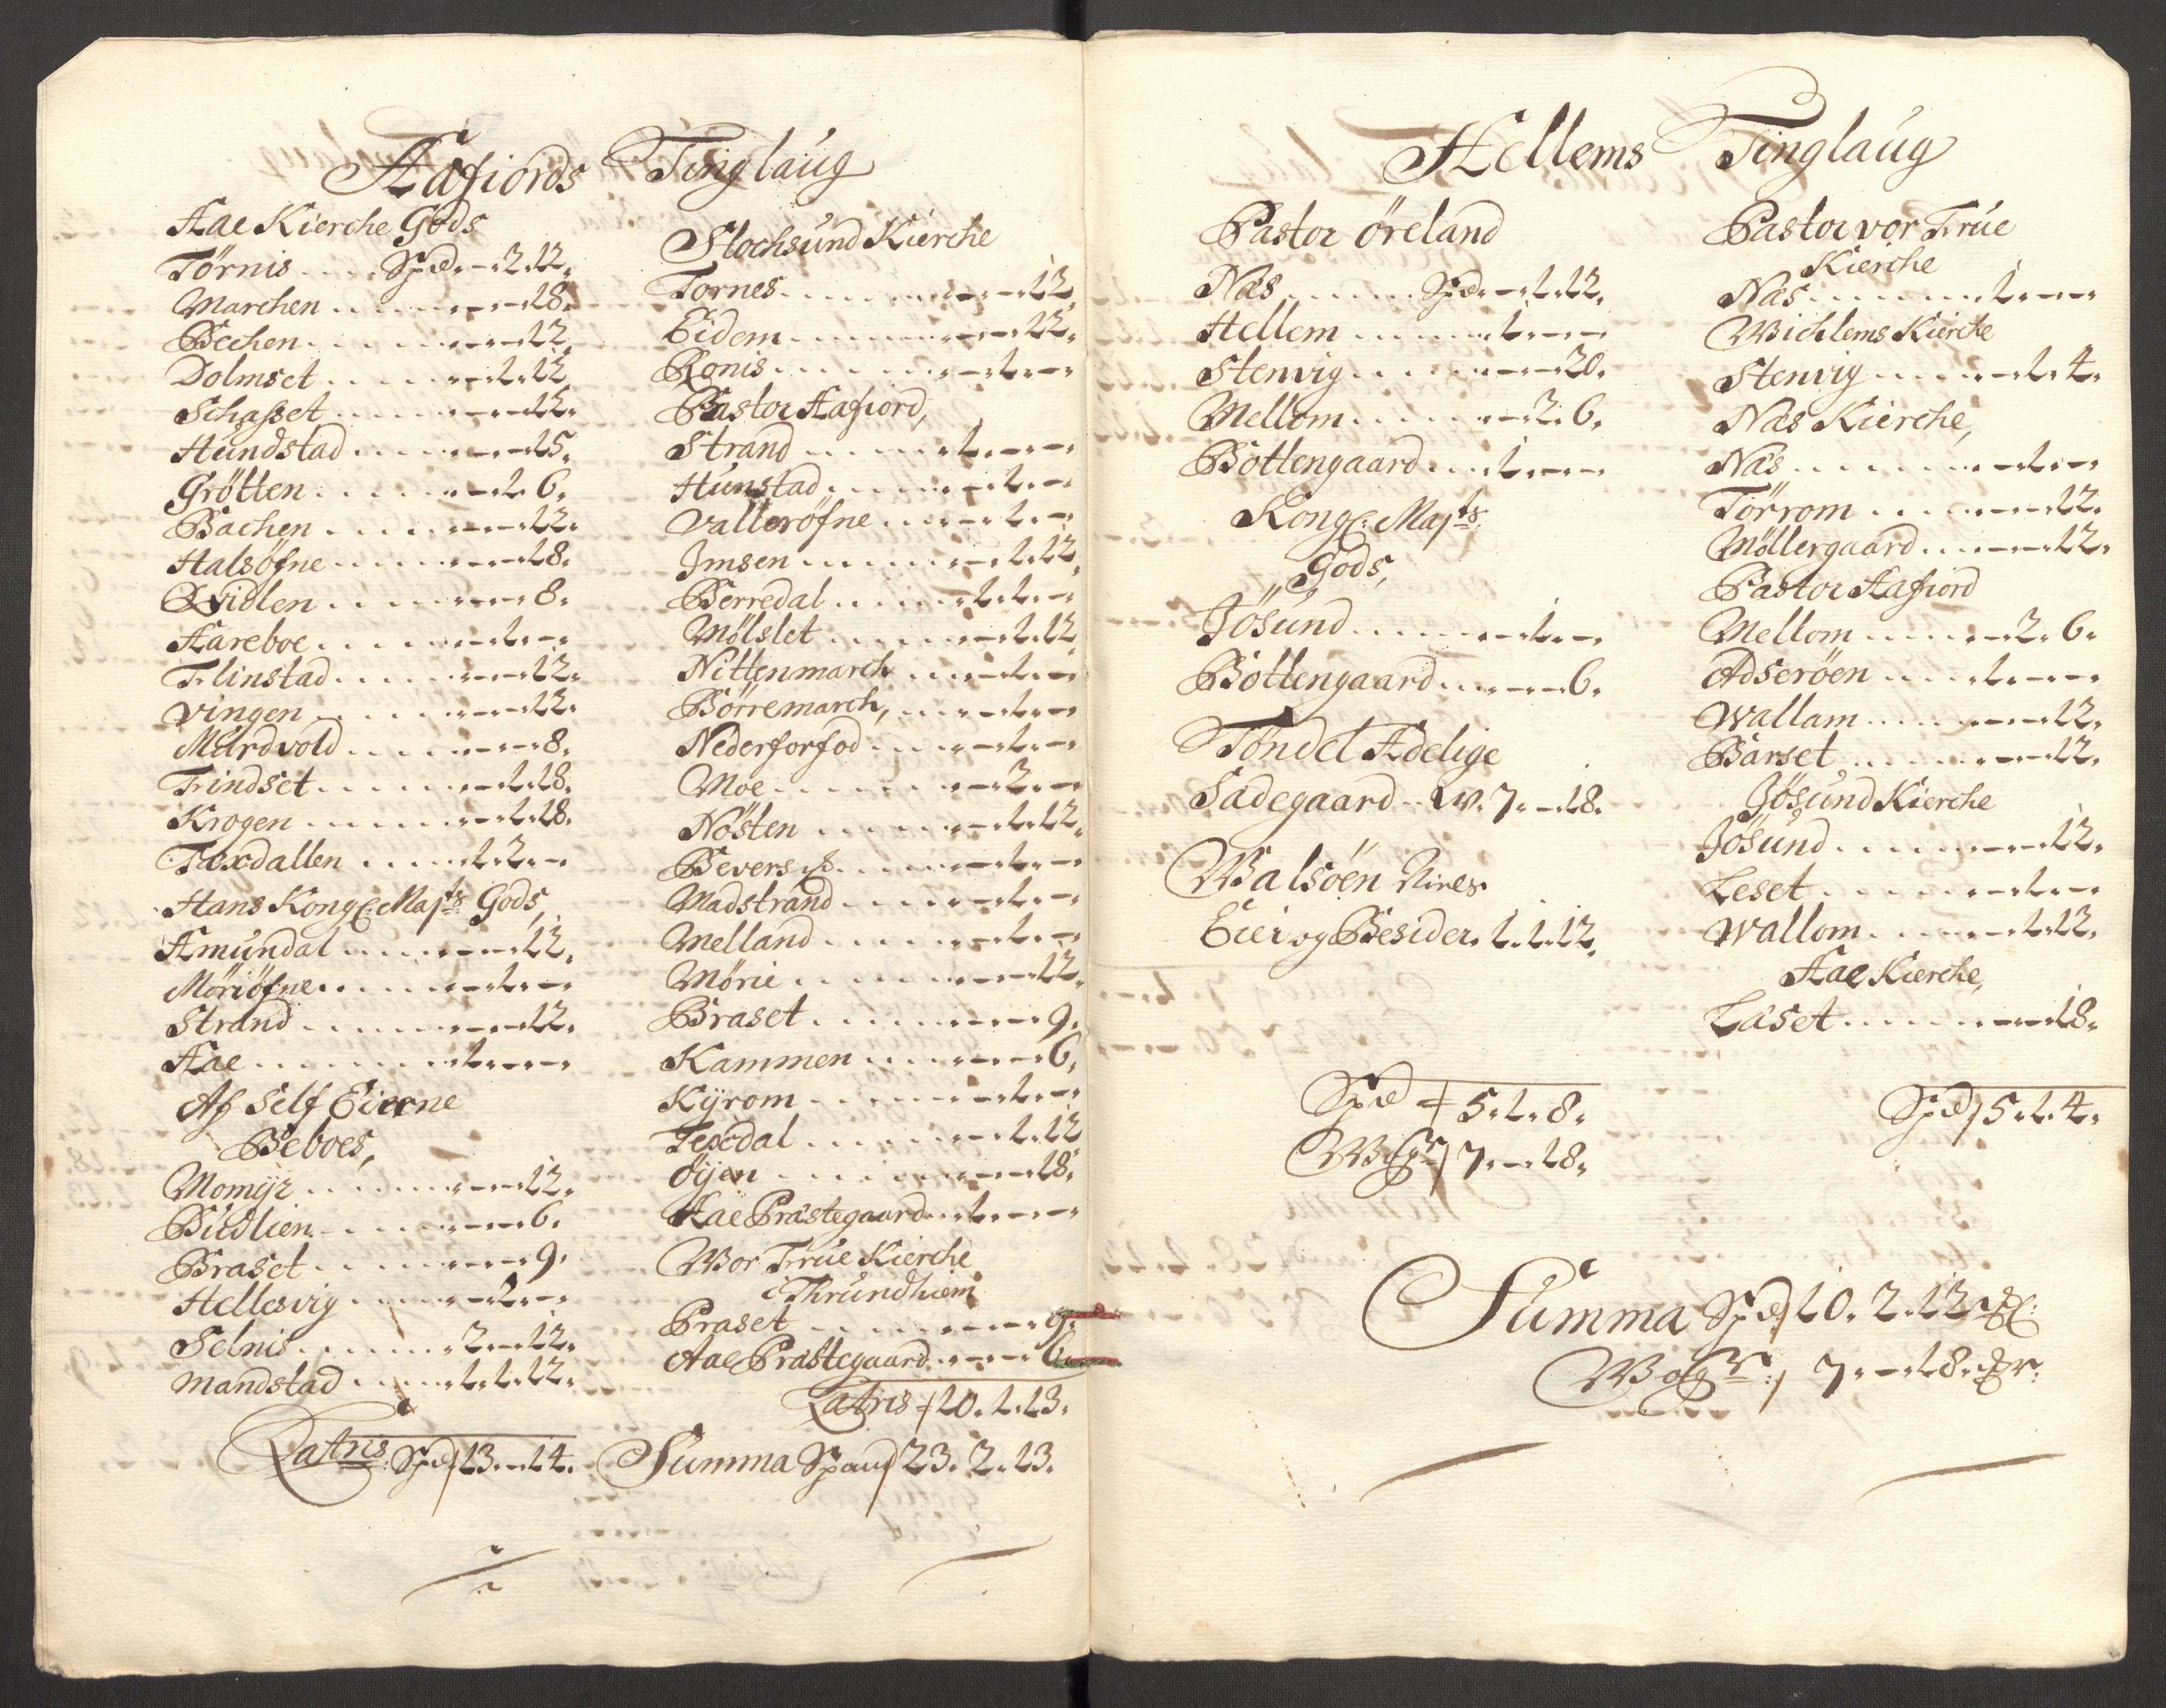 Aafiords Tinglaug
Aae Kierche Gods
Törnis . . . . Spd. - 2. 12.
Marchen . . . . . - - 18.
Bechen . . . . . - - 12.
Dolmset . . . . - 1. 12.
Schasset . . . . . - - 12.
Hundstad . . . . - - 15.
Grötten . . . . . - 1. 6.
Bachen . . . . . - - 12.
Halsöfne . . . . - - 18.
Qvidlen . . . . . - - 8.
Aareboe . . . . . - 1. -
Flinstad . . . . . - - 12.
Vingen . . . . . - - 12.
Mardvold . . . . . - - 8.
Findset . . . . . - 1. 18.
Krogen . . . . . - 1. 18.
Taxdallen . . . . 1. 2. -
Hans Kongl: Majts Gods
Amundal . . . . - - 12.
Möriöfne . . . . - 1. -
Strand . . . . . - - 12.
Aae . . . . . . 1. - -
Af Self Eierne
Beboes,
Momÿr . . . . . - - 12.
Budlien . . . . . - - 6.
Braset . . . . . - - 9.
Hellesvig . . . . - 2. -
Selnis . . . . . 2. - 12.
Mandstad . . . . 1. 1. 12.
Latris Spd 13. - 14.
Stochsund Kierche
Tornes . . . . . - - 12
Eidem . . . . . - - 12.
Ronis . . . . . - 1. -
Pastor Aafiord,
Strand . . . . . 1. - -
Hunstad . . . . - 1. -
Valleröfne . . . . - 1. -
Imsen . . . . . - 1. 12.
Berredal . . . . 1. 1. -
Mölslet . . . . . - 1. 12
Nittenmarch . . . - 1. -
Börremarch, . . . - 1. -
Nederforfod . . . - 1. -
Moe . . . . . - 2. -
Nösten . . . . . - 1. 12.
Bevers . . . . . - 1. -
Madstrand . . . . - 1. -
Melland . . . . . - 1. -
Mörie . . . . . - - 12.
Braset . . . . . - - 9.
Kammen . . . . . - - 6.
Kÿrom . . . . . - 1. -
Texdal . . . . . - 1. 12
Öÿen . . . . . - - 18.
Aae Præstegaard . . 1. - -
Wor Frue Kierche
i Thrundhiem
Praset . . . . . - - 9.
Aae Præstegaard . . - - 6.
Latris 10. 1. 13.
Summa Spand 23. 2. 13.
Hellems Tinglaug
Pastor öreland
Næs . . . . Spd. - 1. 12.
Hellem . . . . . 1. - -
Stenvig . . . . . - - 20.
Mellom . . . . . - 2. 6.
Bottengaard . . . 1. - -
Kongl: Majts
Gods,
Jösund . . . . . - 1. -
Bottengaard . . . - - 6.
Töndel Adelige
Sædegaard . . W. 7. - 18.
Walsöen Aires
Eier og Besider. 1. 1. 12.
Spd 5. 1. 8.
Wogr 7. - 18.
Pastor vor Frue
Kierche
Næs . . . . . 1. - -
Wichlems Kierche
Stenvig . . . . - 1. 4.
Næs Kierche,
Næs . . . . . - 1. -
Törrom . . . . . - - 12.
Möllergaard . . . - - 12.
Pastor Aafiord
Mellom . . . . . - 2. 6.
Adseröen . . . . 1. - -
Wallam . . . . . - - 12.
Barset . . . . . - - 12.
Jösund Kierche
Jösund . . . . . - - 12.
Leset . . . . . - 1. -
Wallom . . . . . - 1. 12.
Aae Kierche,
Læset . . . . . - - 18.
Spd 5. 1. 4.
Summa Spd 10. 2. 12
Wogr: 7. - 18.